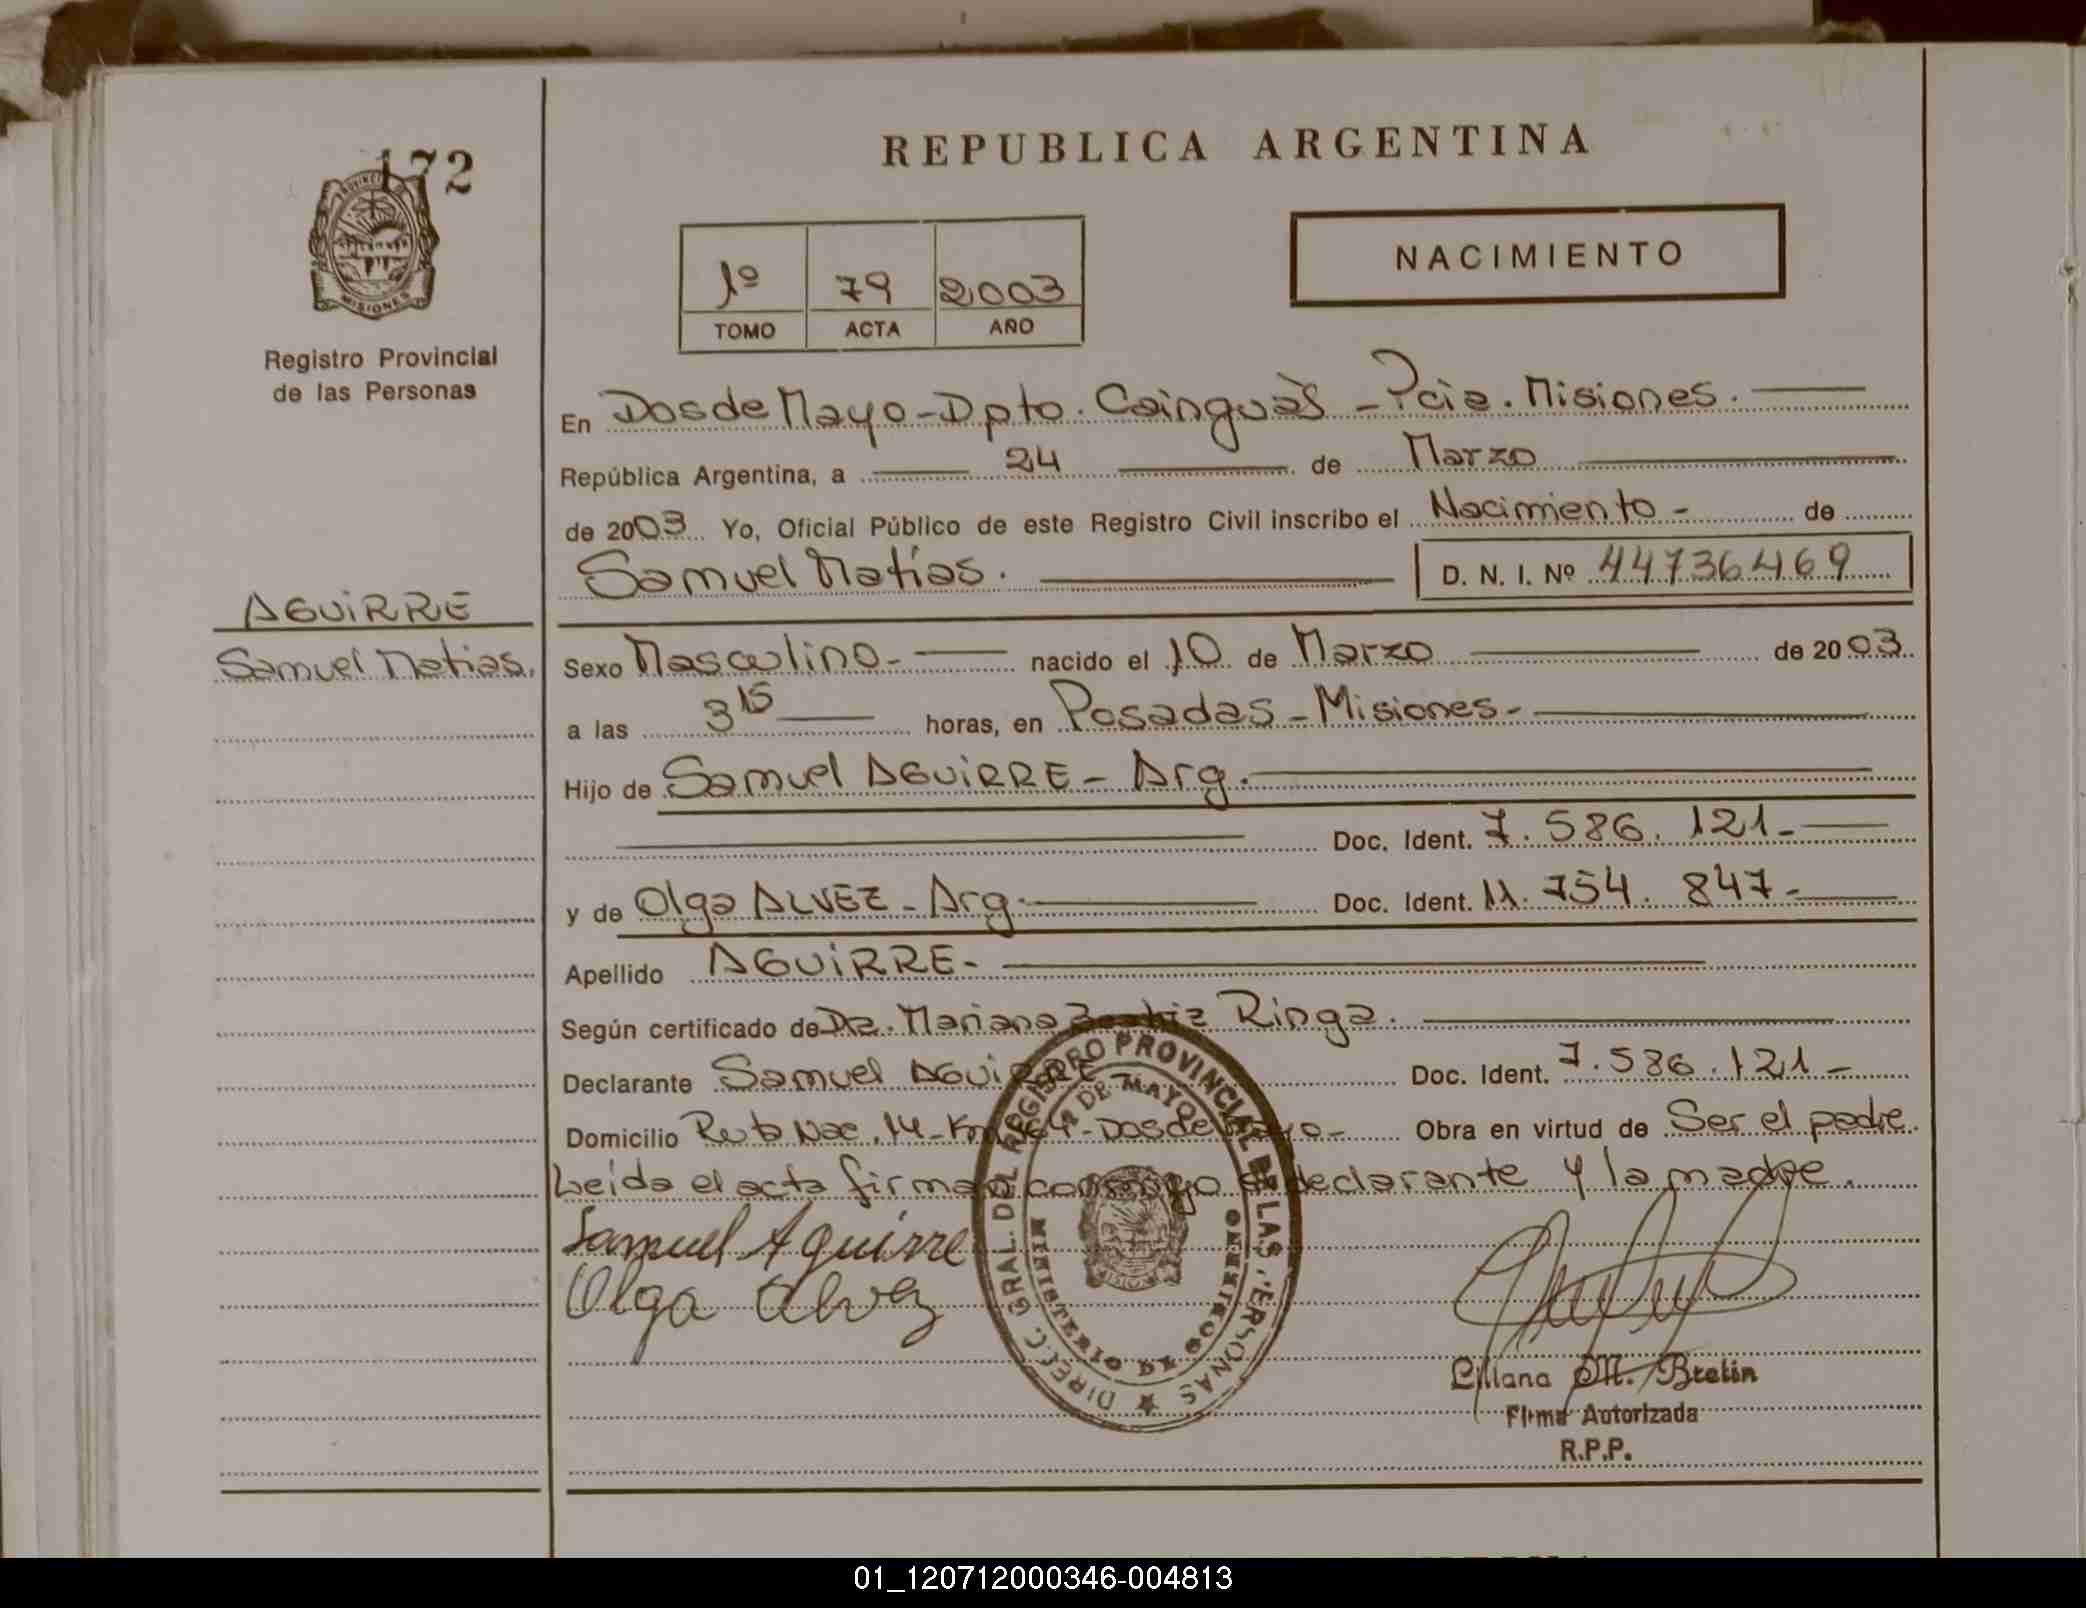 172
PROVINCIA
MISIONES
Registro Provincial
de las Personas
AGUIRRE
Samuel Matias.
REPUBLICA ARGENTINA
1º 79 2003
TOMO ACTA AÑO
NACIMIENTO
En Dos de Mayo - Dpto. Cainguàs - Pcia. Misiones.
República Argentina, a 24 de Marzo
de 2003 Yo, Oficial Público de este Registro Civil inscribo el Nacimiento - de
Samuel Matías. D. N. I. Nº 44736469
Sexo Masculino - nacido el 10 de Marzo de 2003
a las 3 15 horas, en Posadas - Misiones -
Hijo de Samuel AGUIRRE - Arg.
Doc. Ident. 7.586.121 -
y de Olga ALVEZ - Arg. Doc. Ident. 11.754.847 -
Apellido AGUIRRE -
Según certificado de Dra. Mariana Beatriz Ringa.
Declarante Samuel AGUIRRE Doc. Ident. 7.586.121 -
Domicilio Ruta Nac. 14 - Km - Dos de Mayo - Obra en virtud de Ser el padre.
Leída el acta firman conmigo el declarante y la madre.
Samuel Aguirre
Olga Alvez
DIRECC. GRAL. DEL REGISTRO PROVINCIAL DE LAS PERSONAS
DE MAYO
MINISTERIO DE GOBIERNO
Liliana M. Bretin
Firma Autorizada
R.P.P.
01_120712000346-004813